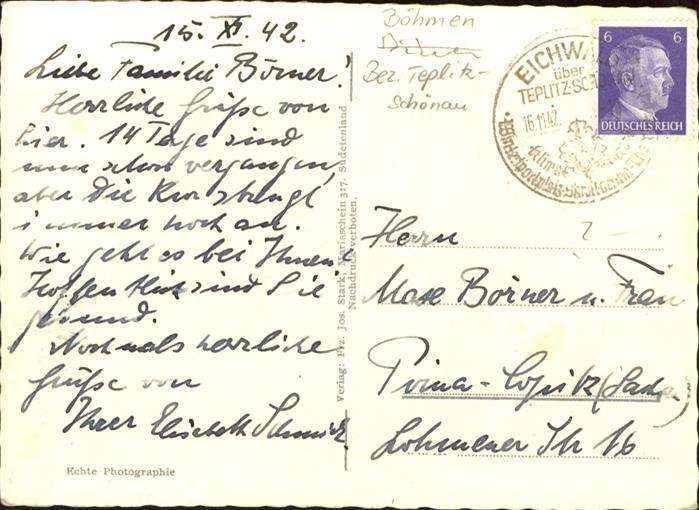 15. XI. 42.
Liebe Familie Börner!
Herrliche Grüße von
hier. 14 Tage sind
nun schon vergangen,
aber die Kur strengt
immer noch an.
Wie geht es bei Ihnen?
Hoffentlich sind Sie
gesund.
Nochmals herrliche
Grüße von
Ihrer Elisabeth Schmidt.
Echte Photographie
Verlag: Frz. Jos. Stark, Mariaschein 317. Sudetenland
Nachdruck verboten.
Böhmen
Bez. Teplitz-
Schönau
EICHWA
über
TEPLITZ-SCH
16.11.42
6 6
DEUTSCHES REICH
Herrn
Max Börner u. Frau
Pirna-Copitz (Sachs)
Lohmener Str 16